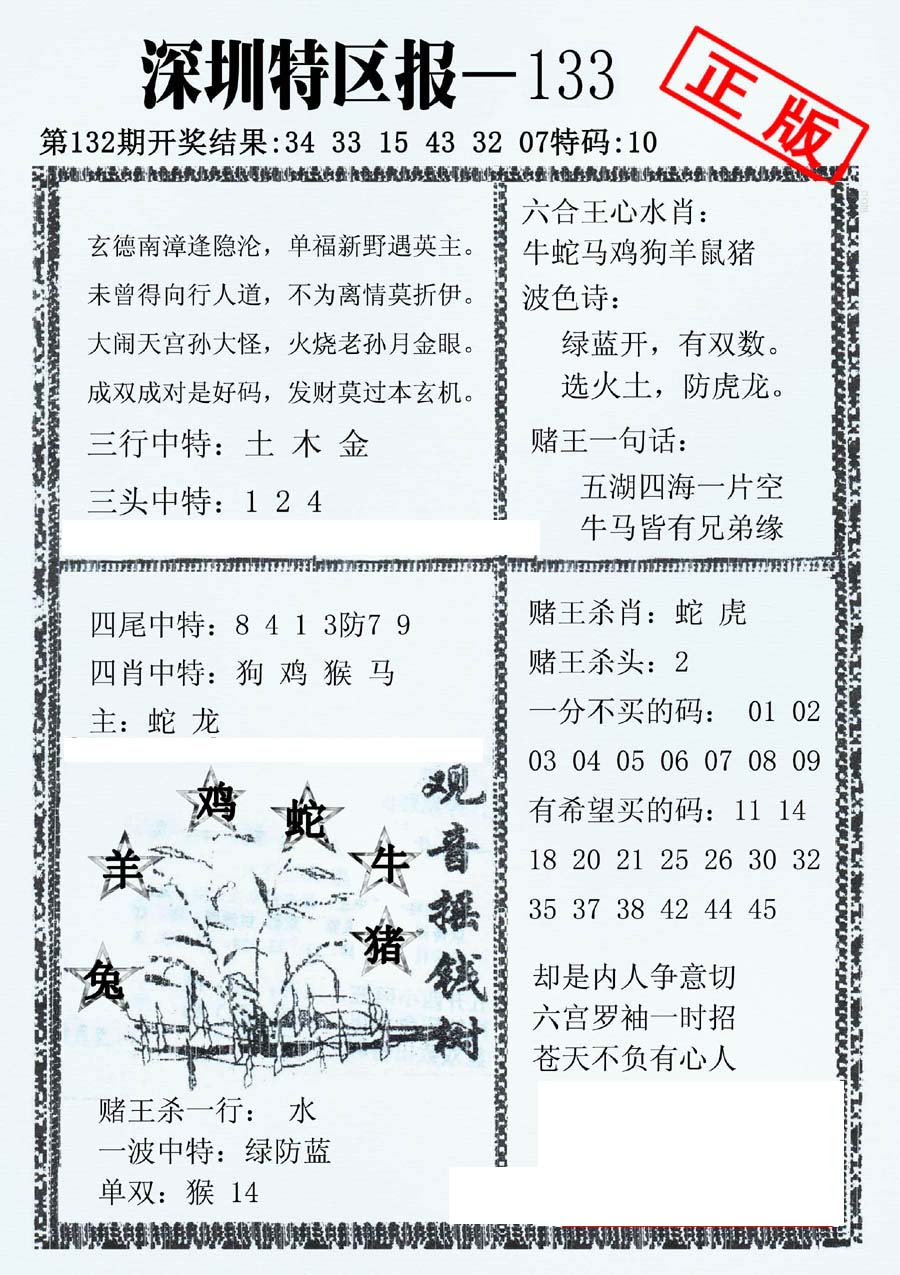 深圳特区报—133
正版
第132期开奖结果:34 33 15 43 32 07特码:10
玄德南漳逢隐沦，单福新野遇英主。
未曾得向行人道，不为离情莫折伊。
大闹天宫孙大怪，火烧老孙月金眼。
成双成对是好码，发财莫过本玄机。
三行中特：土 木 金
三头中特：1 2 4
六合王心水肖：
牛蛇马鸡狗羊鼠猪
波色诗：
绿蓝开，有双数。
选火土，防虎龙。
赌王一句话：
五湖四海一片空
牛马皆有兄弟缘
四尾中特：8 4 1 3防7 9
四肖中特：狗 鸡 猴 马
主：蛇 龙
鸡
蛇
羊
牛
猪
兔
观音摇钱树
赌王杀一行： 水
一波中特：绿防蓝
单双：猴 14
赌王杀肖：蛇 虎
赌王杀头：2
一分不买的码： 01 02
03 04 05 06 07 08 09
有希望买的码：11 14
18 20 21 25 26 30 32
35 37 38 42 44 45
却是内人争意切
六宫罗袖一时招
苍天不负有心人